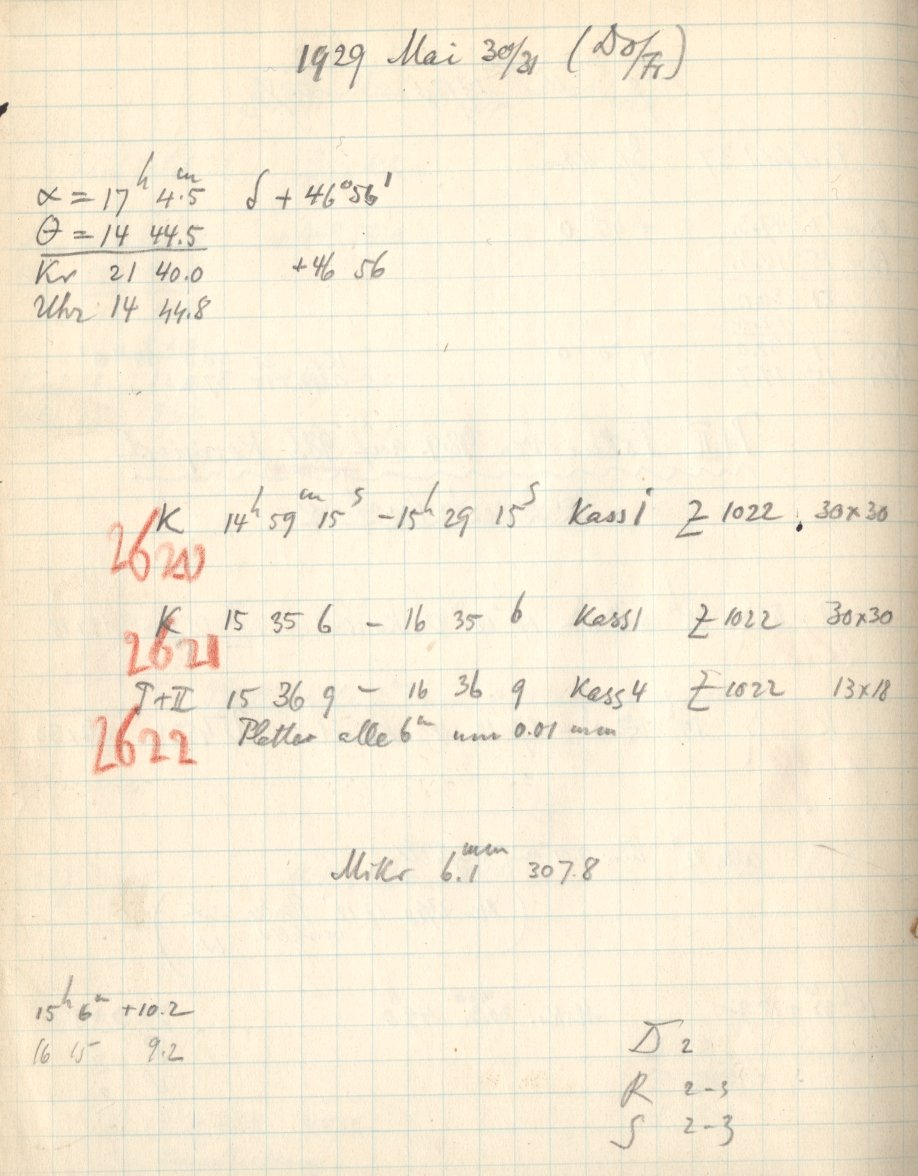 1929 Mai 30/31 (Do/Fr)
α = 17ʰ 4ᵐ.5 δ + 46°56'
θ = 14 44.5
Kr 21 40.0 +46 56
Uhr 14 44.8
K 14ʰ 59ᵐ 15ˢ – 15ʰ 29 15ˢ Kass 1 Z 1022 30×30
2620
K 15 35 6 – 16 35 6 Kass 1 Z 1022 30×30
2621
I+II 15 36 9 – 16 36 9 Kass 4 Z 1022 13×18
2622 Platten alle 6ᵐ um 0.01 mm
Mikr 6.1ᵐᵐ 307.8
15ʰ 6ᵐ +10.2
16 15 9.2
D 2
R 2-3
S 2-3